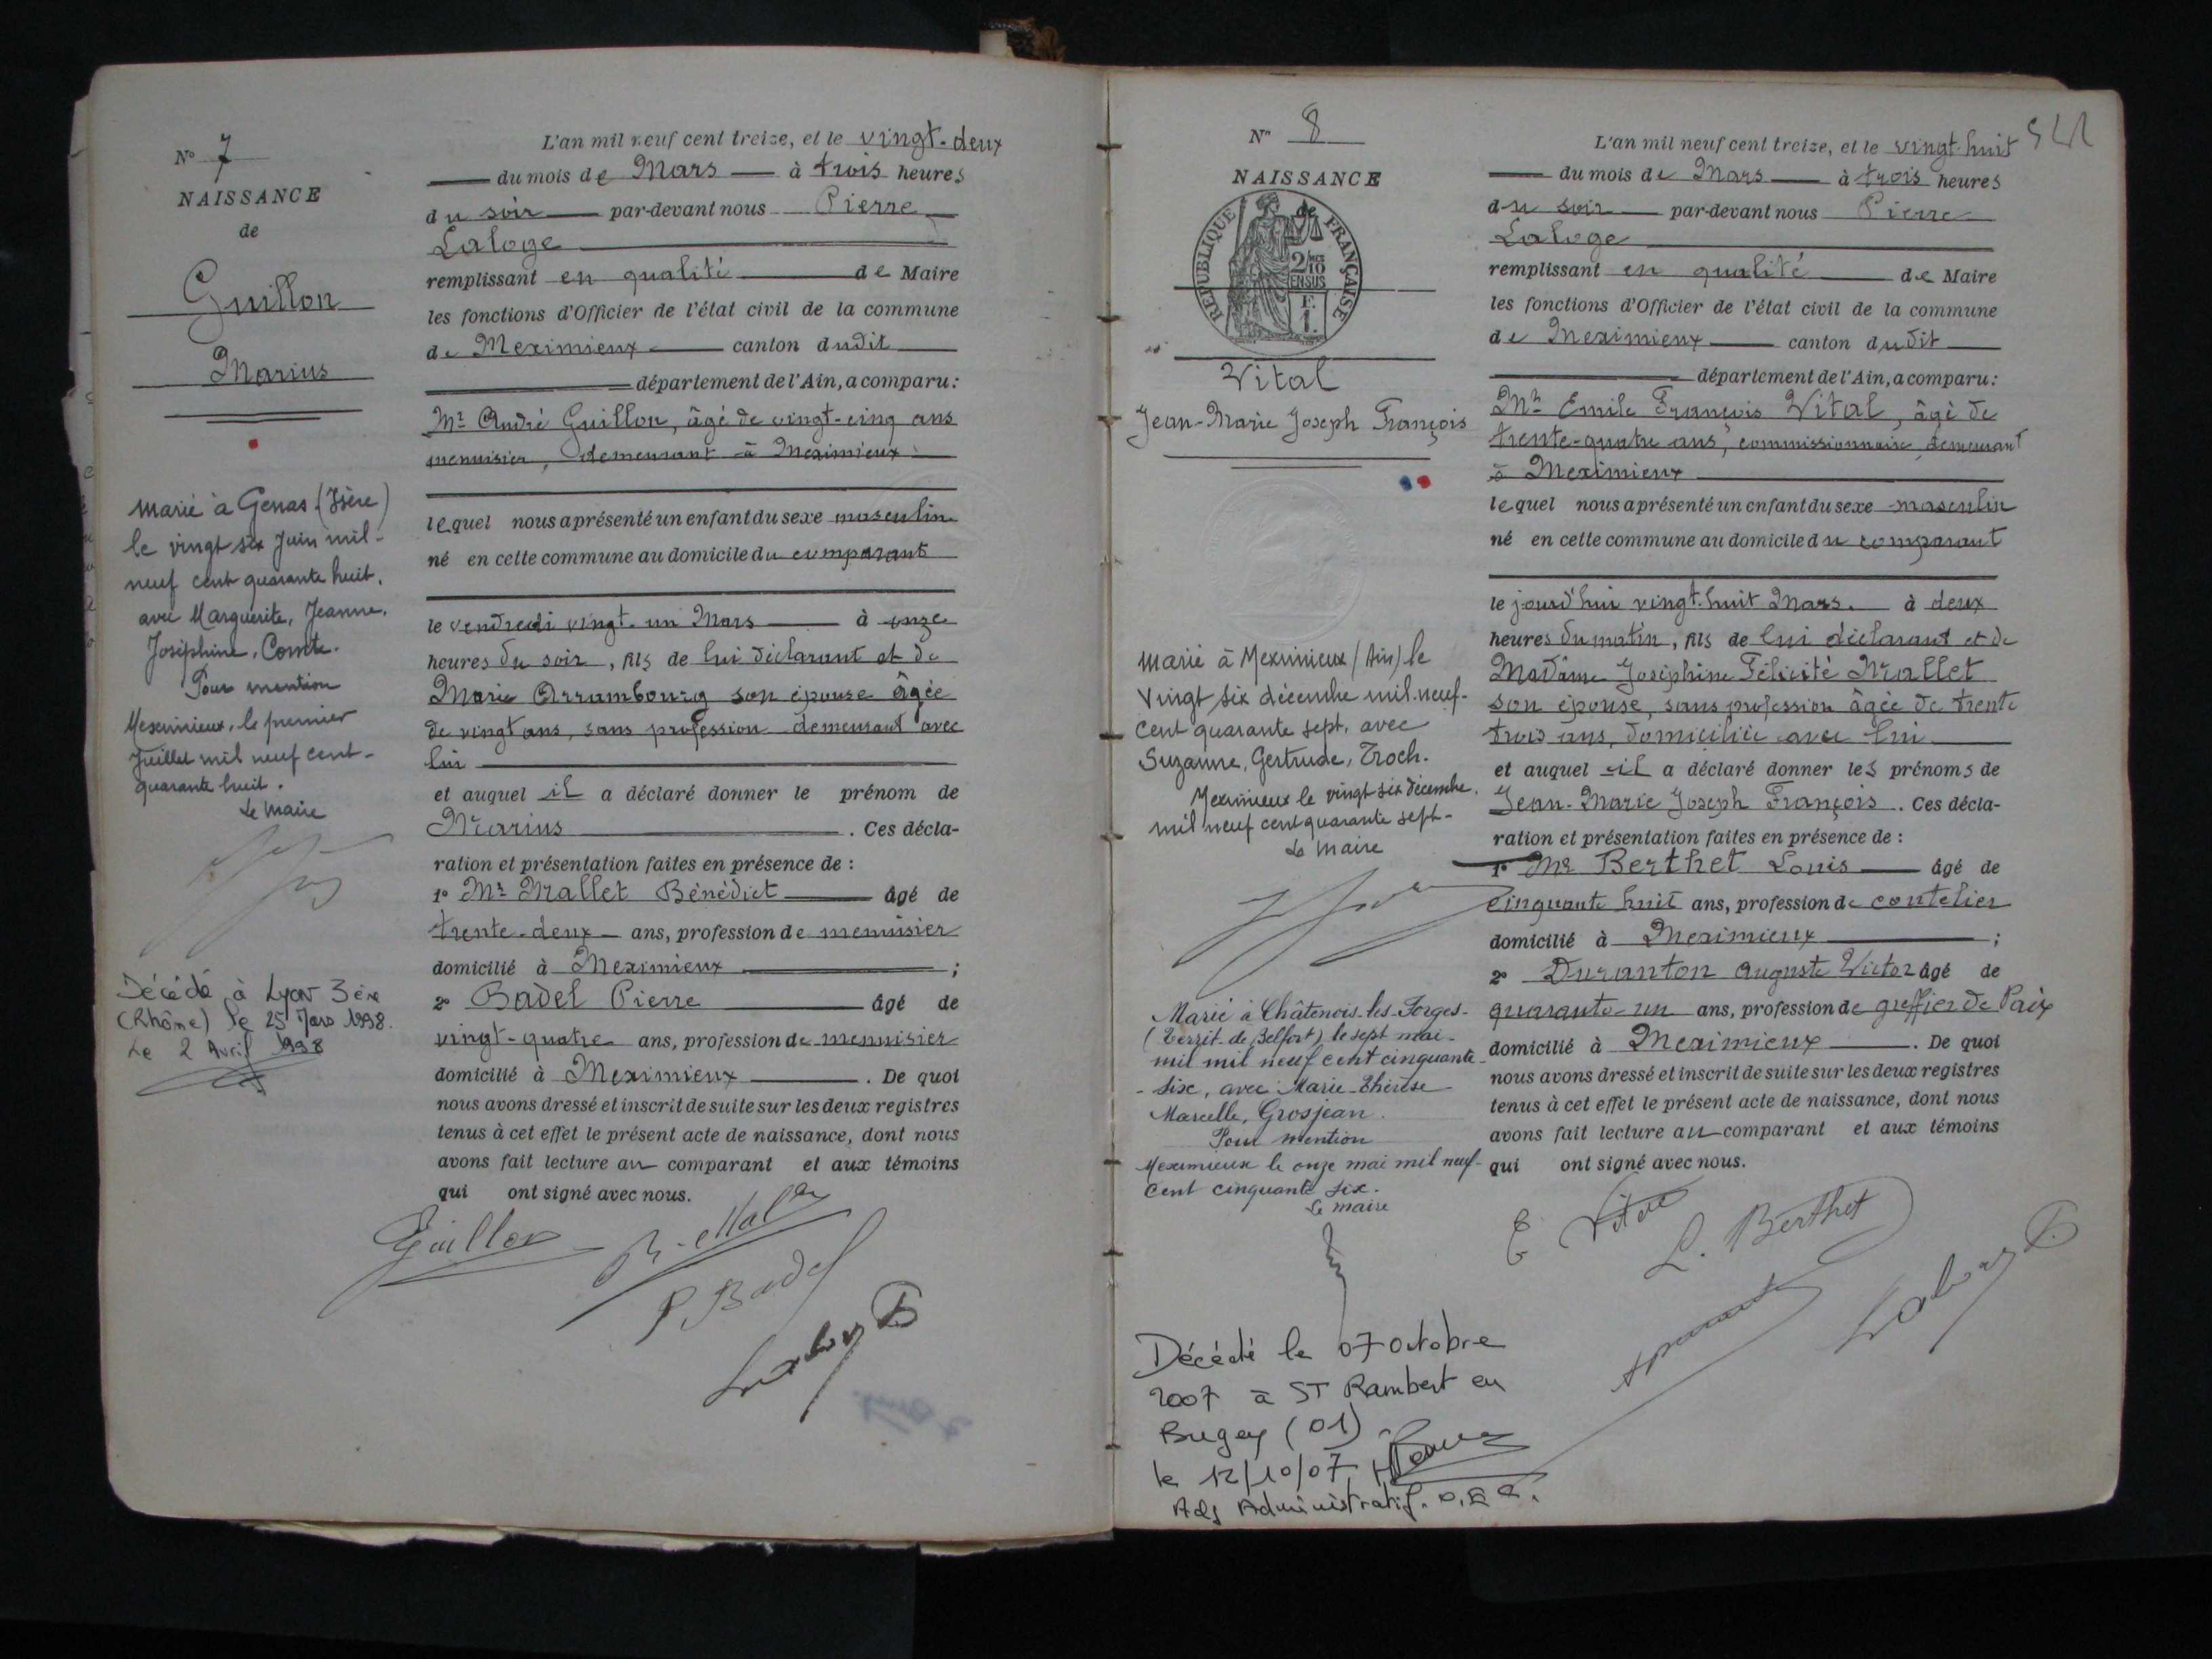 N° 7
NAISSANCE
de
Guillon
Marius
marié à Genas (Isère)
le vingt six Juin mil-
neuf cent quarante huit.
avec Marguerite, Jeanne,
Joséphine, Comte.
Pour mention
Meximieux, le premier
Juillet mil neuf cent-
quarante huit.
Le Maire
Décédé à Lyon 3ème
(Rhône) le 25 Mars 1998.
Le 2 Avril 1998
L'an mil neuf cent treize, et le vingt-deux
du mois de Mars à trois heures
du soir par-devant nous Pierre
Laloge
remplissant en qualité de Maire
les fonctions d'Officier de l'état civil de la commune
de Meximieux canton dudit
département de l'Ain, a comparu :
Mr André Guillon, âgé de vingt-cinq ans
menuisier, demeurant à Meximieux
lequel nous a présenté un enfant du sexe masculin
né en cette commune au domicile du comparant
le vendredi vingt-un Mars à onze
heures du soir, fils de lui déclarant et de
Marie Arrambourg son épouse âgée
de vingt ans, sans profession demeurant avec
lui
et auquel il a déclaré donner le prénom de
Marius . Ces décla-
ration et présentation faites en présence de :
1° Mr Mallet Bénédict âgé de
trente-deux ans, profession de menuisier
domicilié à Meximieux ;
2° Badel Pierre âgé de
vingt-quatre ans, profession de menuisier
domicilié à Meximieux . De quoi
nous avons dressé et inscrit de suite sur les deux registres
tenus à cet effet le présent acte de naissance, dont nous
avons fait lecture au comparant et aux témoins
qui ont signé avec nous.
Guillon
P. Badel
N° 8
NAISSANCE
de
REPUBLIQUE FRANÇAISE
2/10
EN SUS
F.
1.
Vital
Jean-Marie Joseph François
marié à Meximieux (Ain) le
vingt six décembre mil-neuf-
cent quarante sept, avec
Suzanne, Gertrude, Troch.
Meximieux le vingt six décembre
mil neuf cent quarante sept-
Le Maire
Marié à Châtenois-les-Forges-
(Territ. de Belfort) le sept mai-
mil mil neuf cent cinquante-
-six, avec Marie-Thérèse
Marcelle, Grosjean.
Pour mention
Meximieux le onze mai mil neuf-
cent cinquante six.
Le maire
Décédé le 07 octobre
2007 à ST Rambert en
Bugey (01)
le 12/10/07
Adj Administratif.
L'an mil neuf cent treize, et le vingt-huit
du mois de Mars à trois heures
du soir par-devant nous Pierre
Laloge
remplissant en qualité de Maire
les fonctions d'Officier de l'état civil de la commune
de Meximieux canton dudit
département de l'Ain, a comparu :
Mr Emile François Vital, âgé de
trente-quatre ans, commissionnaire demeurant
à Meximieux
lequel nous a présenté un enfant du sexe masculin
né en cette commune au domicile du comparant
le jourd'hui vingt-huit Mars. à deux
heures du matin, fils de lui déclarant et de
Madame Joséphine Félicité Mallet
son épouse, sans profession âgée de trente
trois ans, domiciliée avec lui
et auquel il a déclaré donner les prénoms de
Jean-Marie Joseph François . Ces décla-
ration et présentation faites en présence de :
1° Mr Berthet Louis âgé de
cinquante huit ans, profession de coutelier
domicilié à Meximieux ;
2° Duranton Auguste Victor âgé de
quarante-un ans, profession de greffier de Paix
domicilié à Meximieux . De quoi
nous avons dressé et inscrit de suite sur les deux registres
tenus à cet effet le présent acte de naissance, dont nous
avons fait lecture au comparant et aux témoins
qui ont signé avec nous.
E. Vital
L. Berthet